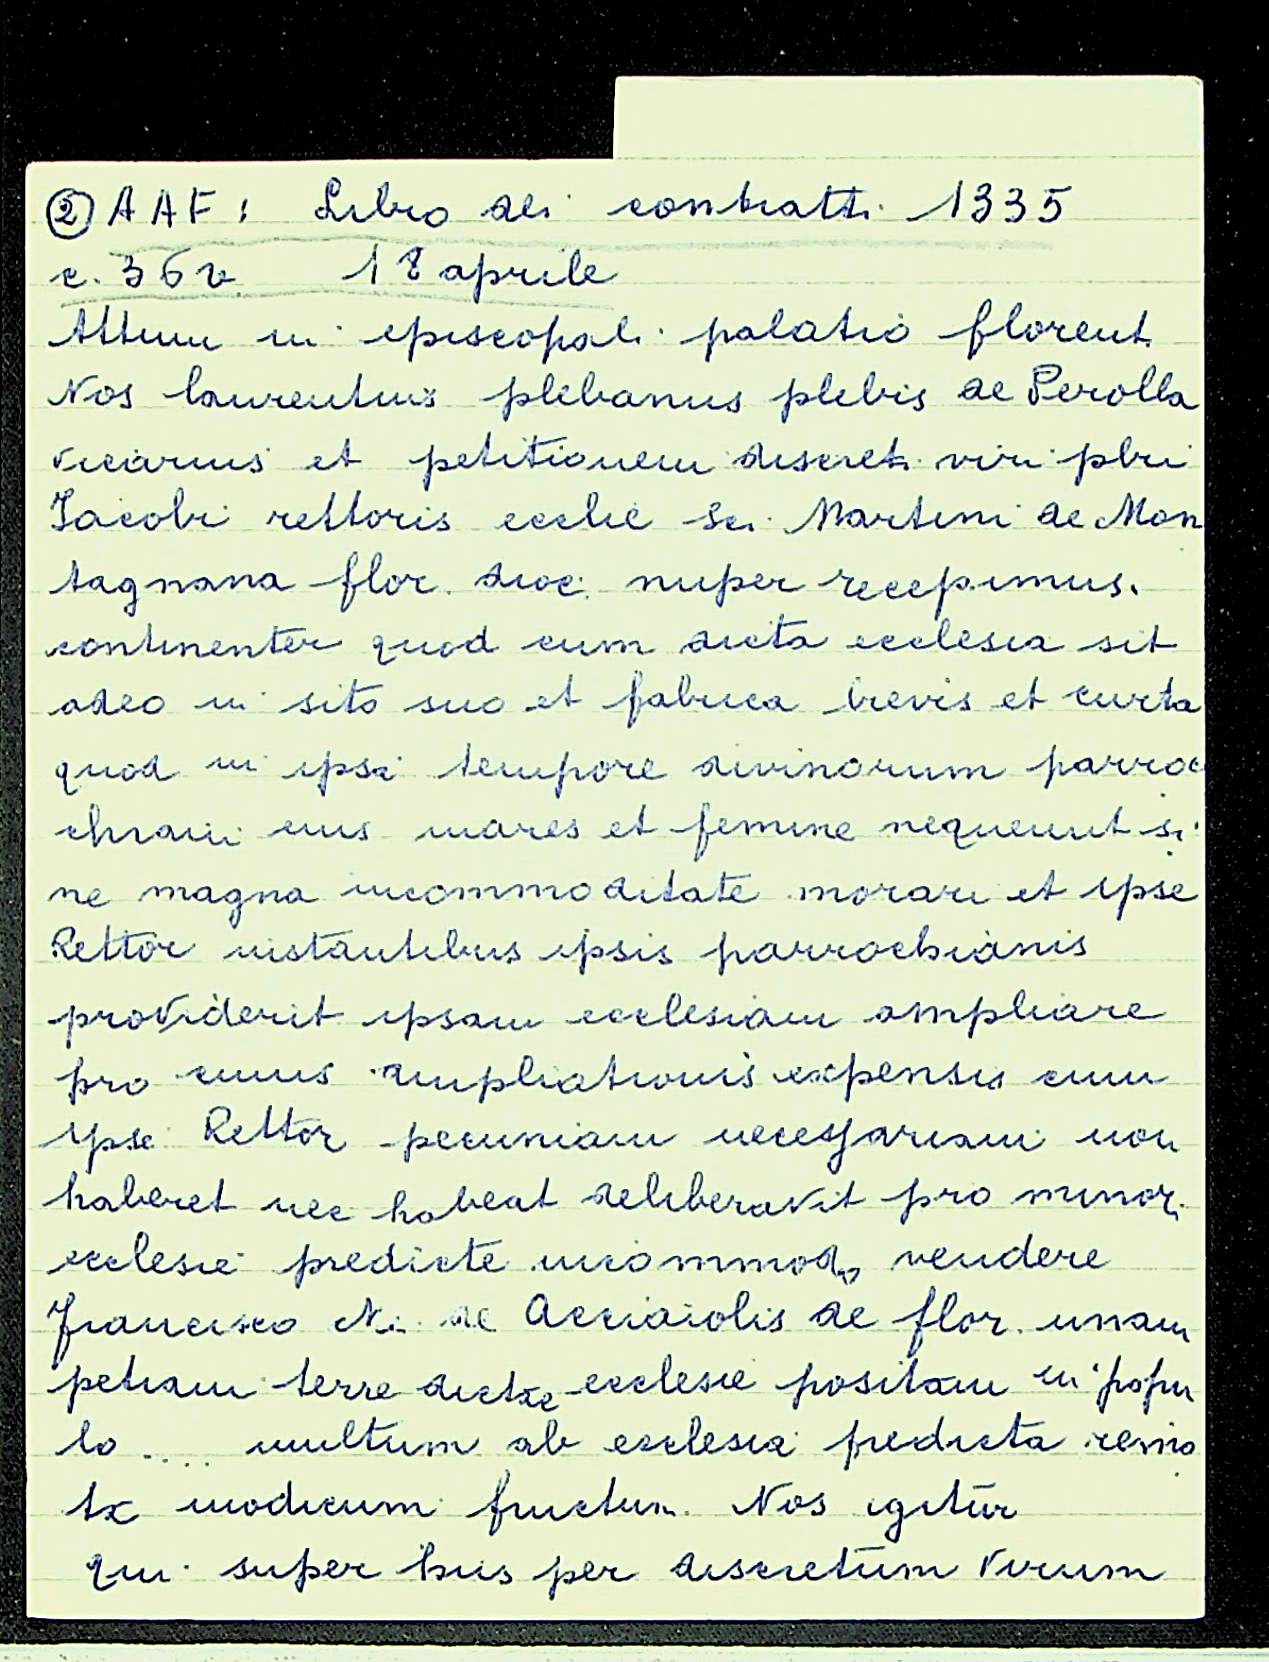 ② AAF: Libro dei contratti 1335
c. 36v. 18 aprile
Attum in episcopali palatio florent.
Nos laurentius plebanus plebis de Perolla
vicarius et petitionem discreti viri pbri
Iacobi rettoris ecclie Sci. Martini de Mon
tagnana flor. dioc. nuper recepimus.
continenter quod cum dicta ecclesia sit
adeo in sito suo et fabrica brevis et curta
quod in ipsa tempore divinorum parroc
chiani eius mares et femine nequeunt si
ne magna incommoditate morari et ipse
Rettor instantibus ipsis parrochianis
providerit ipsam ecclesiam ampliare
pro cuius ampliationis expensis cum
ipse Rettor pecuniam necessariam non
haberet nec habeat deliberavit pro minori
ecclesie predicte incommodo vendere
Francisco Ni. de Acciaiolis de flor. unam
petiam terre dicte ecclesie positam in popu
lo ..... multum ab ecclesia predicta remo
ta modicum fructum. Nos igitur
qui super hiis per discretum virum